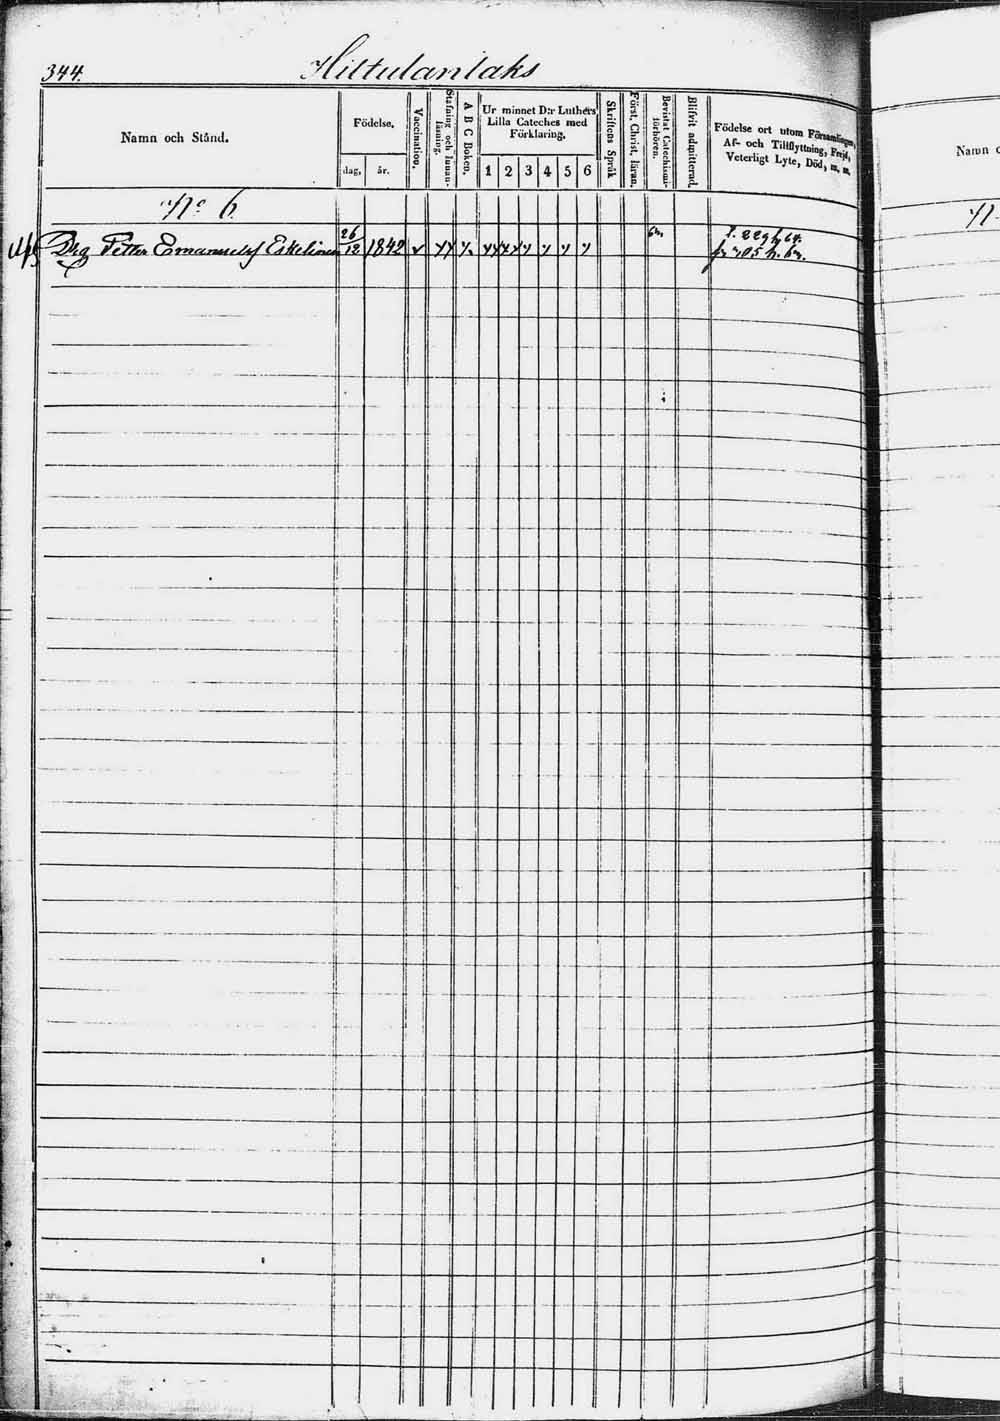 344.
Hiltulanlaks
Namn och Stånd.
Födelse.
dag,
år.
Vaccination.
Stafning och Innanläsning.
A B C Boken.
Ur minnet D:r Luthers
Lilla Cateches med
Förklaring.
1 2 3 4 5 6
Skriftens Språk
Först. Christ. läran.
Bevistat Catechismiförhören.
Blifvit admitterad.
Födelse ort utom Församlingen,
Af- och Tillflyttning, Frejd,
Veterligt Lyte, Död, m. m.
Namn
No 6.
Drg Petter Emanuelss Eskelinen 26/12 1842